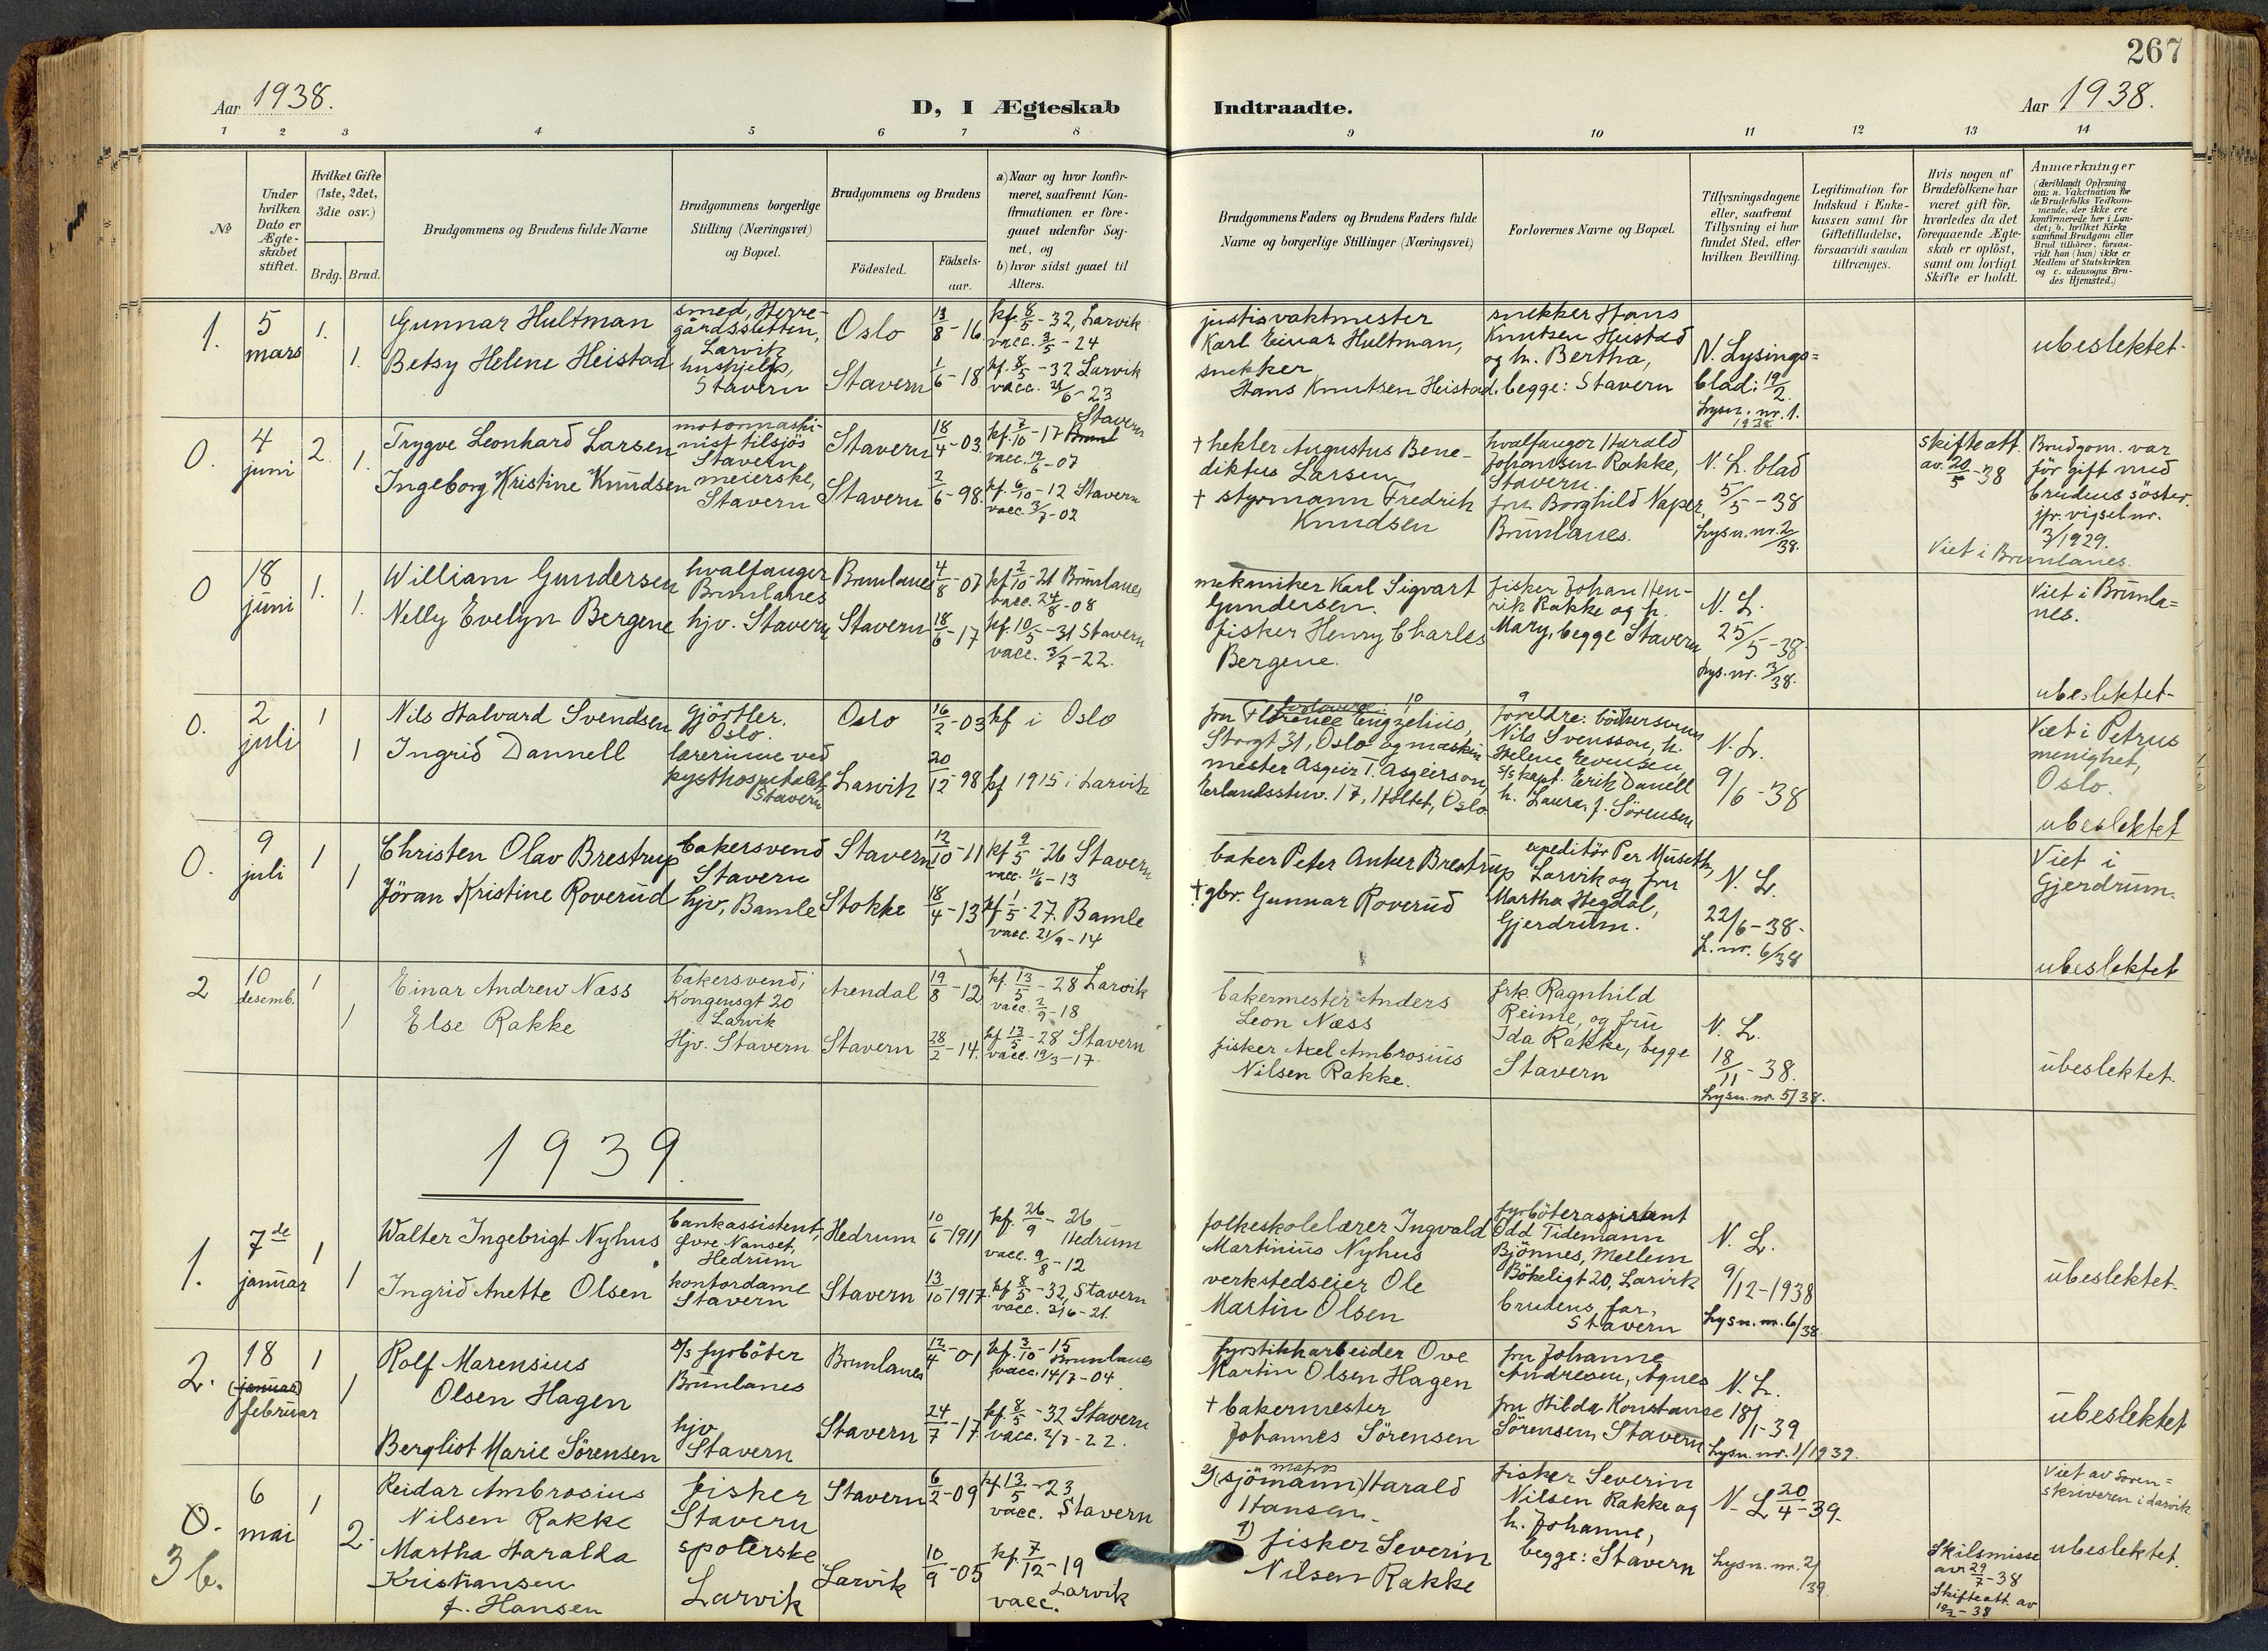 267
Aar 1938.
D, I Ægteskab Indtraadte.
Aar 1938.
1 2 3 4 5 6 7 8 9 10 11 12 13 14
No
Under hvilken Dato er Ægteskabet stiftet.
Hvilket Gifte (1ste, 2det, 3die osv.)
Brdg. Brud.
Brudgommens og Brudens fulde Navne
Brudgommens borgerlige Stilling (Næringsvei) og Bopæl.
Brudgommens og Brudens
Födested.
Födselsaar.
a) Naar og hvor konfirmeret, saafremt Konfirmationen er foregaaet udenfor Sognet, og
b) hvor sidst gaaet til Alters.
Brudgommens Faders og Brudens Faders fulde Navne og borgerlige Stillinger (Næringsvei)
Forlovernes Navne og Bopæl.
Tillysningsdagene eller, saafremt Tillysning ei har fundet Sted, efter hvilken Bevilling.
Legitimation for Indskud i Enkekassen samt for Giftetilladelse, forsaavidt saadan tiltrænges.
Hvis nogen af Brudefolkene har været gift för, hvorledes da det foregaaende Ægteskab er oplöst, samt om lovligt Skifte er holdt.
Anmærkninger
(deriblandt Oplysning om: a. Vakcination for de Brudefolks Vedkommende, der ikke ere konfirmerede her i Landet; b. hvilket Kirkesamfund Brudgom eller Brud tilhörer, forsaavidt han (hun) ikke er Medlem af Statskirken og c. udensogns Brudes Hjemsted.)
1. 5 mars 1. 1.
Gunnar Hultman
Betsy Helene Heistad
smed, Herregårdssletten, Larvik
hushjelp, Stavern
Oslo 13/8-16
Stavern 1/6-18
kf. 8/5-32, Larvik
vacc. 3/5-24
kf. 8/5-32 Larvik
vacc. 21/6-23
justisvaktmester
Karl Einar Hultman,
snekker
Hans Knutsen Heistad.
snekker Hans
Knutsen Heistad
og h. Bertha,
begge: Stavern
N. Lysingsblad: 19/2.
Lysn. nr. 1. 1938
ubeslektet
0. 4 juni 2. 1.
Trygve Leonhard Larsen
Ingeborg Kristine Knudsen
motormaskinist tilsjös
Stavern
meierske,
Stavern
Stavern 18/4-03.
Stavern 2/6-98.
kf. 7/10-17 Stavern
vacc. 19/6-07
kf. 6/10-12 Stavern
vacc. 3/7-02
† hekler Augustus Benediktus Larsen
† styrmann Fredrik Knudsen
hvalfanger Harald
Johansen Rakke,
Stavern.
fru Borghild Naper,
Brunlanes.
N. L. blad
5/5-38
Lysn. nr. 2/38.
skifteatt. av. 20/5-38
Brudgom. var
för gift med
brudens söster.
jfr. vigsel nr.
3/1929.
Viet i Brunlanes.
0 18 juni 1. 1.
William Gundersen
Nelly Evelyn Bergene
hvalfanger
Brunlanes
hjv. Stavern
Brunlanes 4/8-07
Stavern 18/6-17
kf 2/10-21 Brunlanes
vacc. 24/8-08
kf. 10/5-31 Stavern
vacc. 3/7-22.
mekaniker Karl Sigvart
Gundersen.
fisker Henry Charles
Bergene.
fisker Johan Henrik Rakke og h.
Mary, begge Stavern
N. L.
25/5-38
Lys. nr. 3/38.
Viet i Brunlanes.
ubeslektet
0. 2 juli 1 1
Nils Halvard Svendsen
Ingrid Dannell
gjörtler.
Oslo.
lærerinne ved
kysthospitalet,
Stavern
Oslo 16/2-03
Larvik 20/12-98
kf i Oslo
kf 1915 i Larvik
forlovere: 10
fru Florence Engzelius,
Storgt 31, Oslo og maskinmester Asgeir T. Asgeirson,
Erlandsstuv. 17, Holtet, Oslo.
9
foreldre: bökersvenn
Nils Svensson, h.
Helene Evensen,
s/s kapt. Erik Danell
h. Laura, f. Sörensen
N. L.
9/6-38
Viet i Petrus
menighet,
Oslo.
ubeslektet
0. 9 juli 1 1
Christen Olav Brestrup
Jöran Kristine Roverud
bakersvend
Stavern
hjv, Bamle
Stavern 12/10-11
Stokke 18/4-13
kf 9/5-26 Stavern
vacc. 11/6-13
kf 1/5-27. Bamle
vacc. 21/9-14
baker Peter Anker Brestrup
† gbr. Gunnar Roverud
expeditör Per Museth,
Larvik og fru
Martha Hegdal,
Gjerdrum.
N. L.
22/6-38.
L. nr. 6/38
Viet i
Gjerdrum.
ubeslektet
2 10 desemb. 1 1
Einar Andrew Næss
Else Rakke
bakersvend,
Kongensgt 20
Larvik
Hjv. Stavern
Arendal 19/8-12
Stavern 28/2-14.
kf. 13/5-28 Larvik
vacc. 2/9-18
kf 13/5-28 Stavern
vacc. 19/3-17.
bakermester Anders
Leon Næss
fisker Axel Ambrosius
Nilsen Rakke.
frk. Ragnhild
Reime, og fru
Ida Rakke, begge
Stavern
N. L.
18/11-38.
Lysn. nr. 5/38.
ubeslektet.
1939.
1. 7de januar 1 1
Walter Ingebrigt Nyhus
Ingrid Anette Olsen
bankassistent,
Övre Nanset,
Hedrum
kontordame
Stavern
Hedrum 10/6-1911
Stavern 13/10-1917.
kf. 26/9-26
Hedrum
vacc. 9/8-12
kf 8/5-32, Stavern
vacc. 3/6-21.
folkeskolelærer Ingvald
Martinius Nyhus
verkstedseier Ole
Martin Olsen
fyrböteraspirant
Odd Tidemann
Bjönnes, Mellem
Bökeligt 20, Larvik
brudens far,
Stavern
N. L.
9/12-1938
Lysn. nr. 6/38
ubeslektet.
2. 18 (januar) februar 1 1
Rolf Marensius
Olsen Hagen
Bergliot Marie Sörensen
s/s fyrböter
Brunlanes
hjv
Stavern
Brunlanes 12/4-01
Stavern 24/7-17
kf. 3/10-15
Brunlanes
vacc. 14/7-04.
kf. 8/5-32 Stavern
vacc. 2/7-22.
fyrstikkarbeider Ove
Martin Olsen Hagen
† bakermester
Johannes Sörensen
fru Johanne
Andresen, Agnes
fru Hilda Konstanse
Sörensen, Stavern
N. L.
18/1-39
Lysn. nr. 1/1939.
ubeslektet
0. 3b. 6 mai 1 2
Reidar Ambrosius
Nilsen Rakke
Martha Haralda
Kristiansen
f. Hansen
fisker
Stavern
spolerske
Larvik
Stavern 6/2-09
Larvik 10/9-05
kf 13/5-23
vacc. Stavern
kf. 7/12-19
Larvik
vacc.
matros
2) (sjömann) Harald
Hansen.
1) fisker Severin
Nilsen Rakke
fisker Severin
Nilsen Rakke og
h. Johanne,
begge: Stavern
N. L 20/4-39.
Lysn. nr. 2/39.
Skilsmisse
av 29/7-38
Skifteatt. av
Viet av Sorenskriveren i Larvik
ubeslektet.